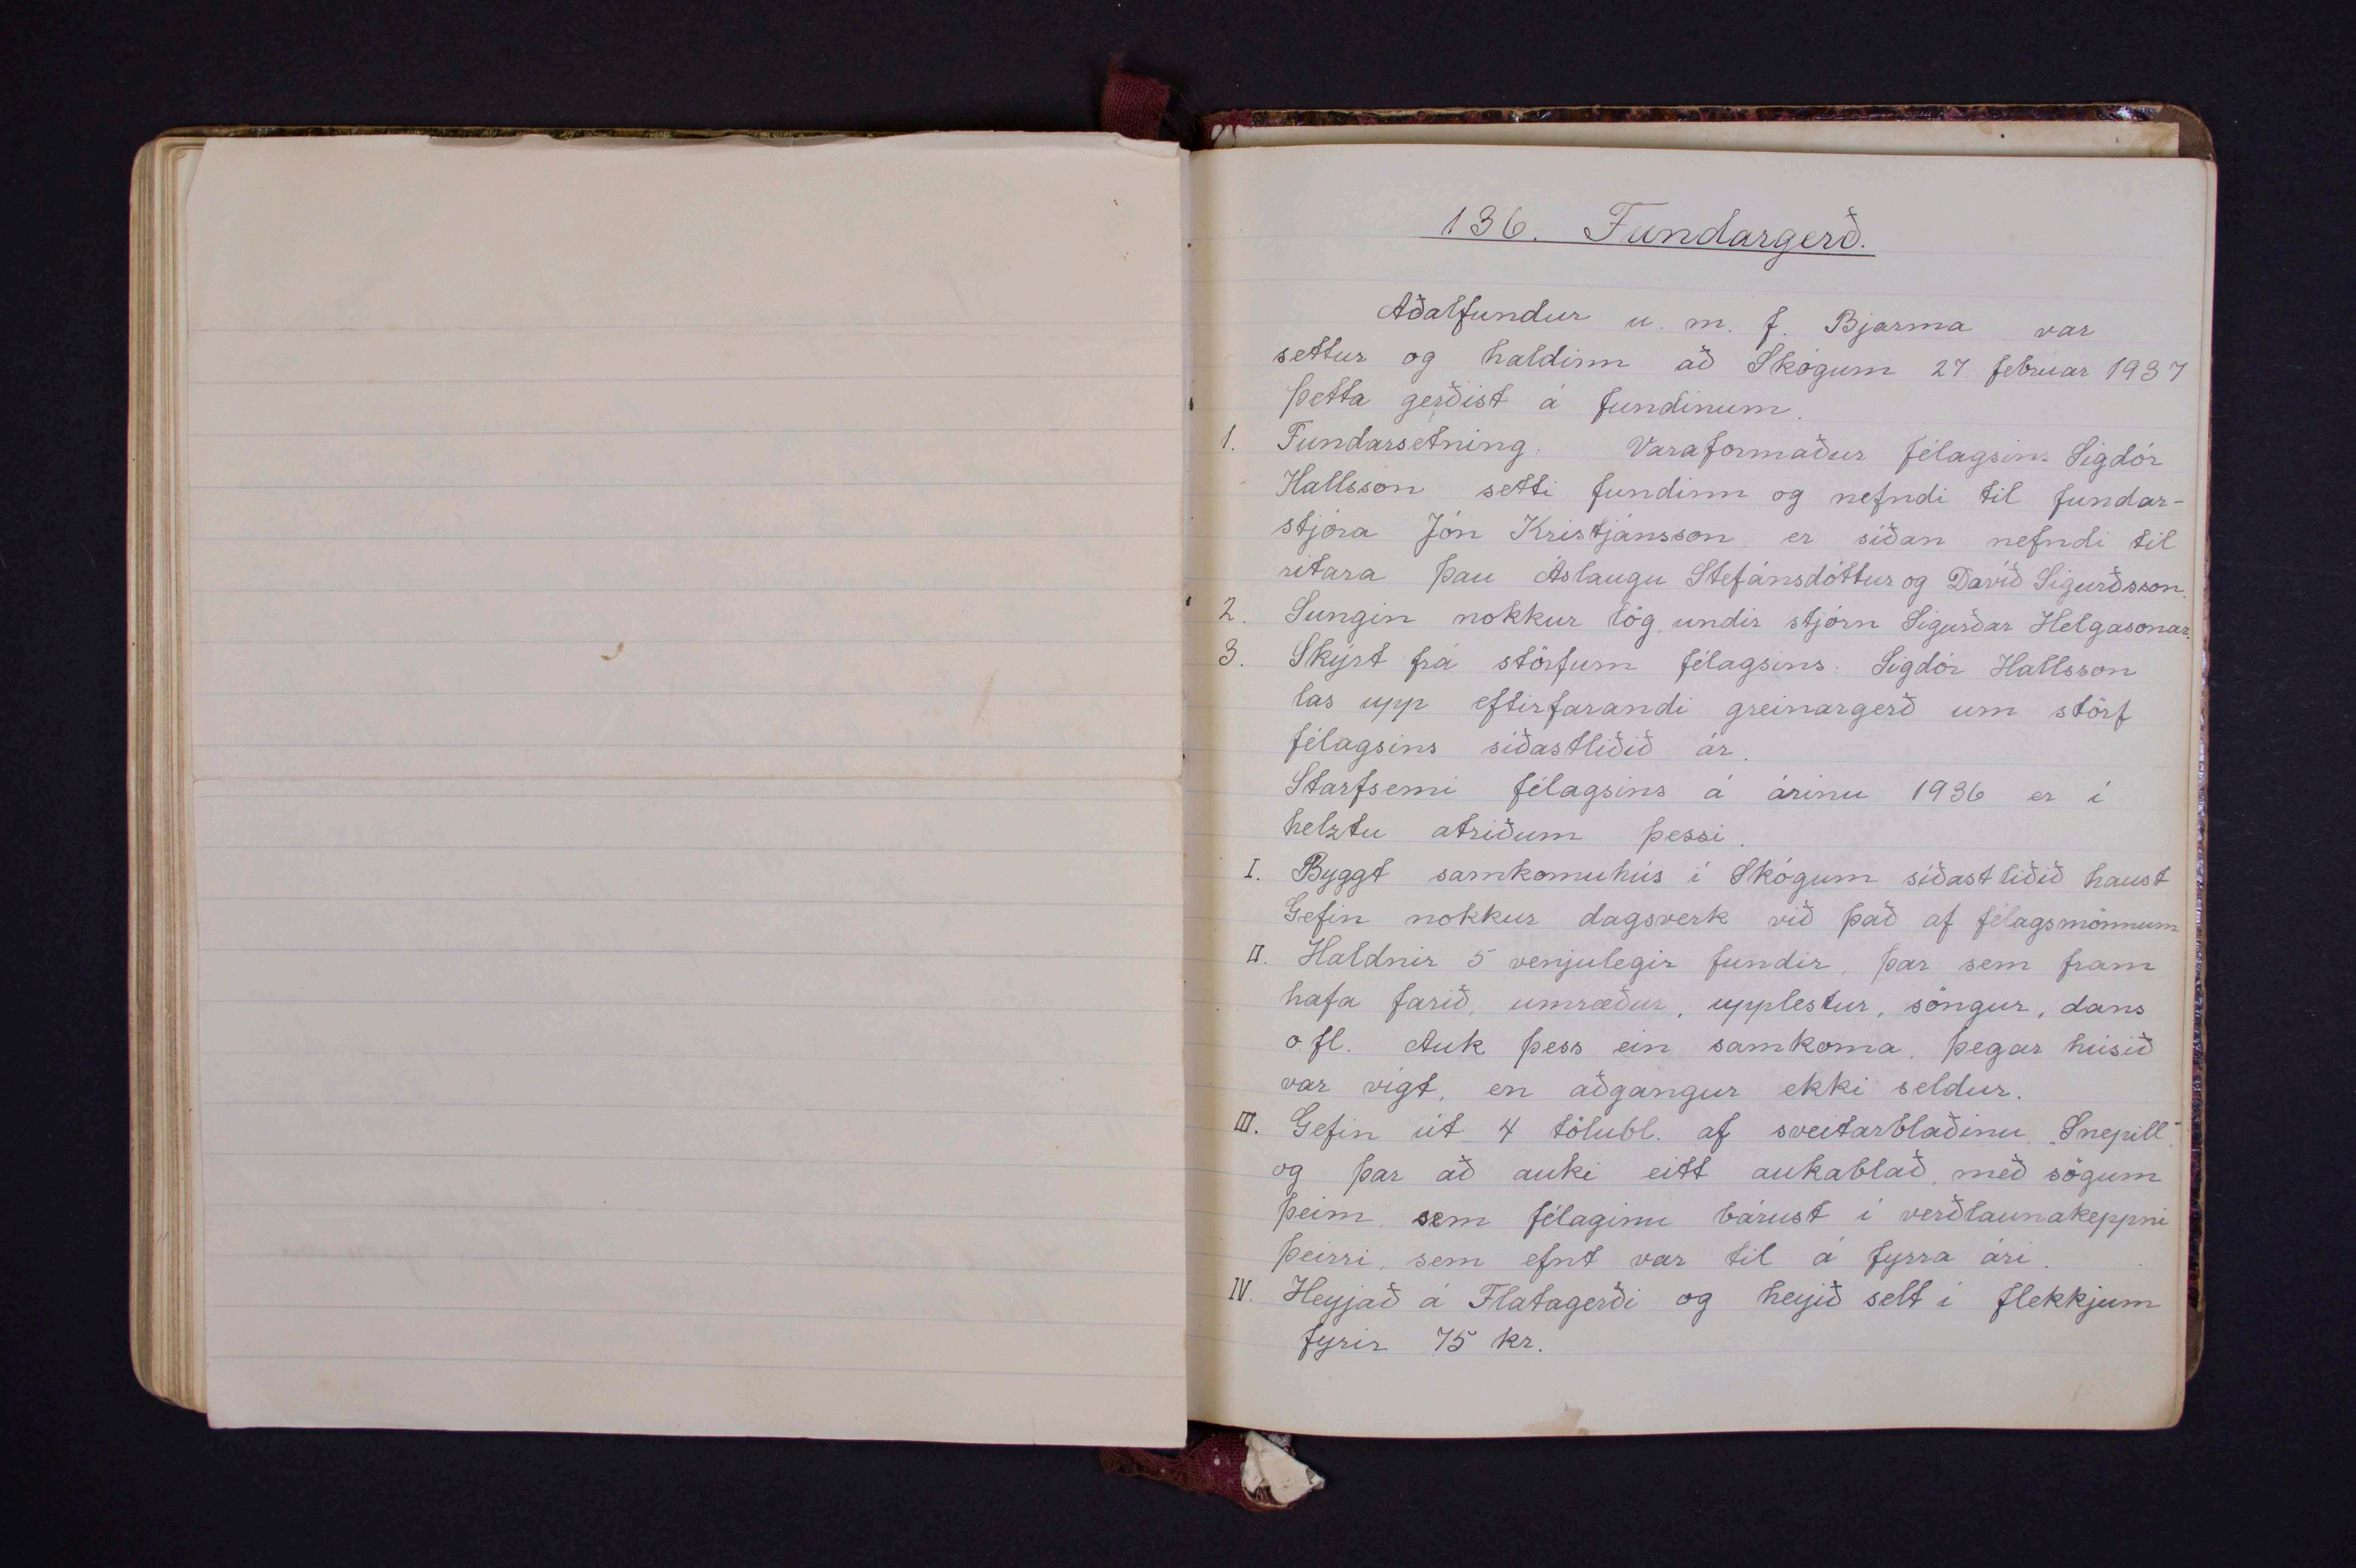 136. Fundargerð.
Aðalfundur u. m. f. Bjarma var
settur og haldinn að Skógum 27. febrúar 1937
Þetta gerðist á fundinum.
1. Fundarsetning. Varaformaður félagsins Sigdór
Hallsson setti fundinn og nefndi til fundar-
stjóra Jón Kristjánsson, er síðan nefndi til
ritara þau Áslaugu Stefánsdóttur og Davíð Sigurðsson.
2. Sungin nokkur lög, undir stjórn Sigurðar Helgasonar.
3. Skýrt frá störfum félagsins. Sigdór Hallsson
las upp eftirfarandi greinargerð um störf
félagsins síðastliðið ár.
Starfsemi félagsins á árinu 1936 er í
helztu atriðum þessi.
I. Byggt samkomuhús í Skógum síðastliðið haust
Gefin nokkur dagsverk við það af félagsmönnum
II. Haldnir 5 venjulegir fundir, þar sem fram
hafa farið, umræður, upplestur, söngur, dans
o fl. Auk þess ein samkoma, þegar húsið
var vígt, en aðgangur ekki seldur.
III. Gefin út 4 tölubl. af sveitarblaðinu „Snepill“
og þar að auki eitt aukablað, með sögum
þeim, sem félaginu bárust í verðlaunakeppni
þeirri, sem efnt var til á fyrra ári.
IV. Heyjað á Flatagerði og heyið selt í flekkjum
fyrir 75 kr.